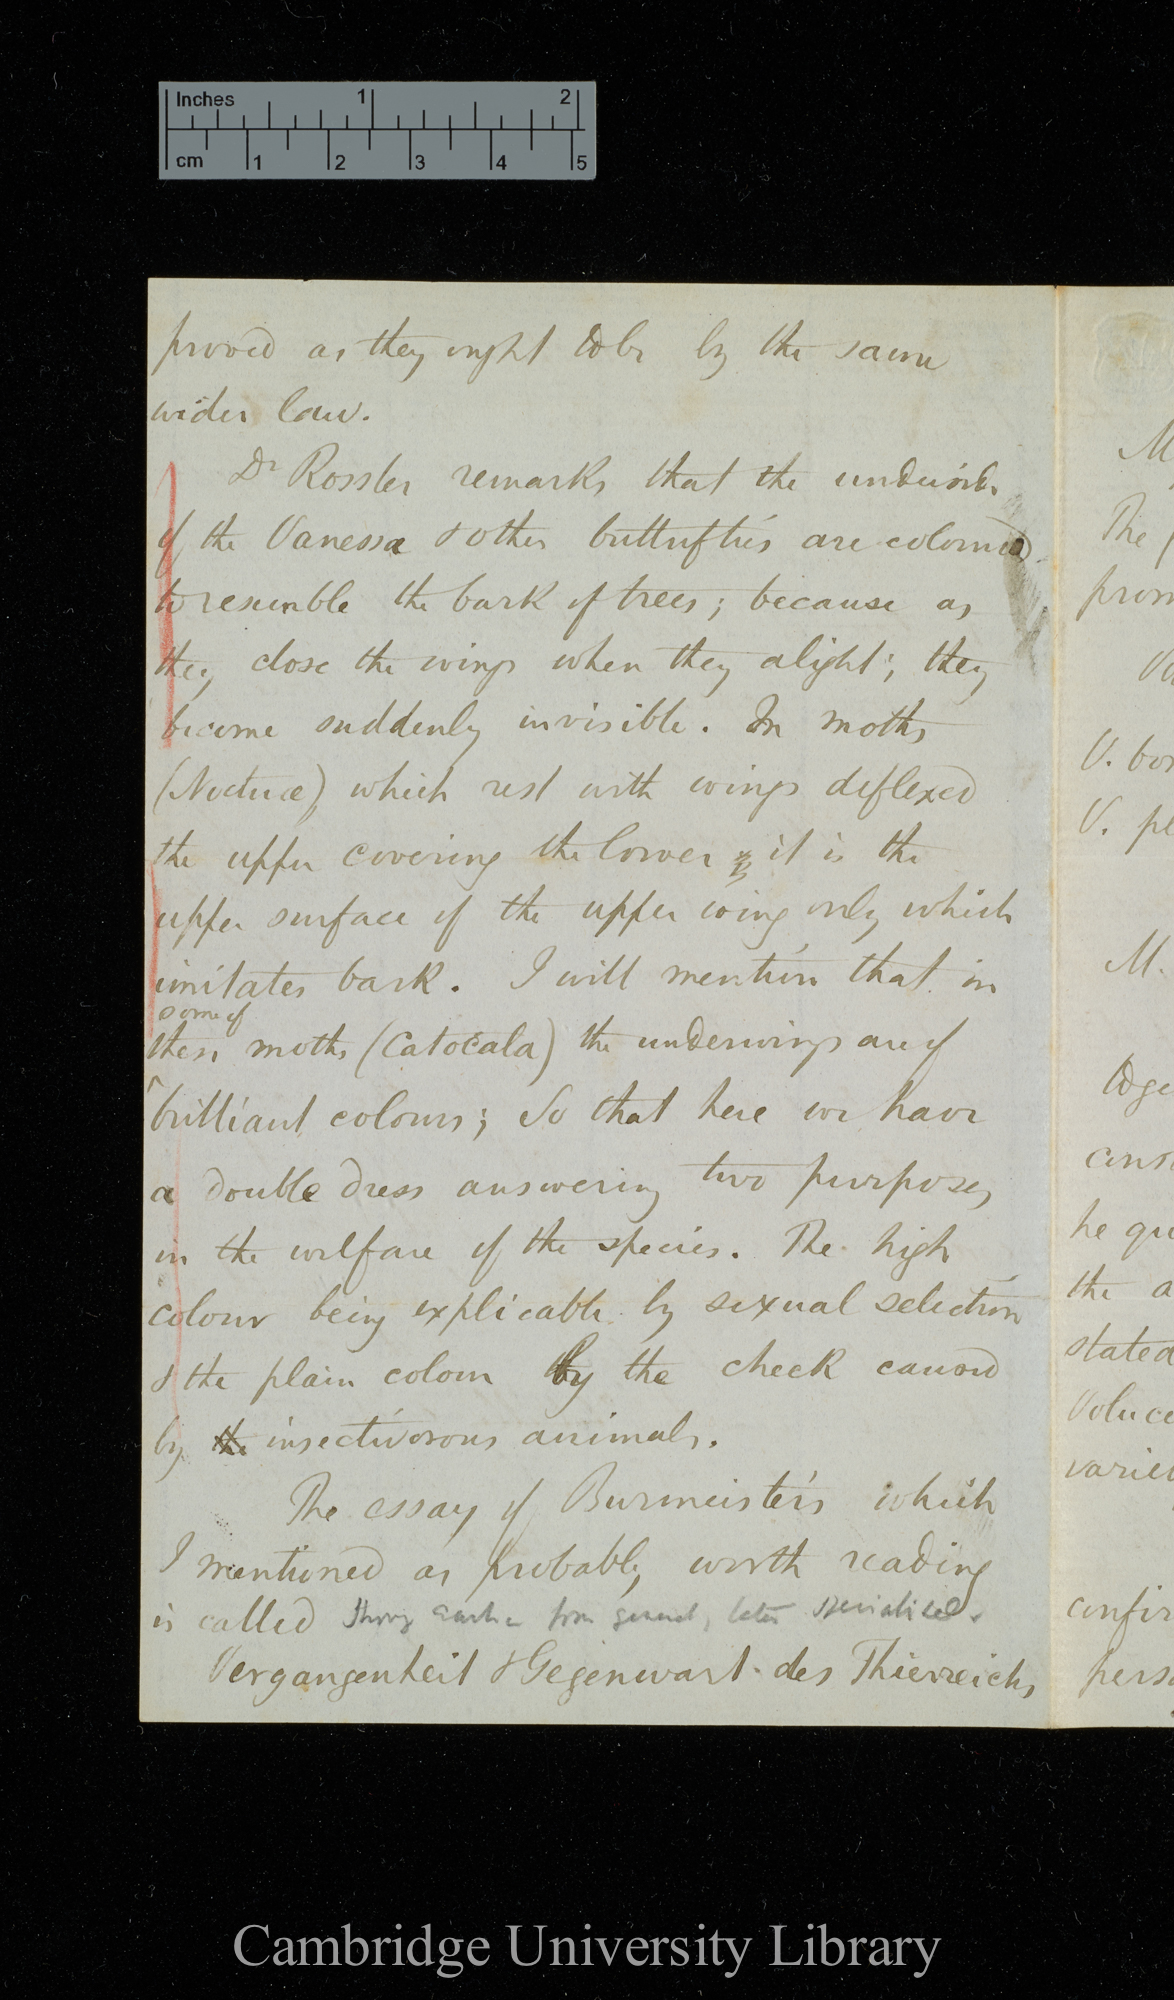 Inches 1 2
cm 1 2 3 4 5
proved as they ought to be by the same
wider law.
Dr Rossler remarks that the underside
of the Vanessa & other butterflies are coloured
to resemble the bark of trees; because as
they close the wings when they alight; they
become suddenly invisible. In moths
(Noctuæ) which rest with wings deflexed
the upper covering the lower it is the
upper surface of the upper wing only which
imitates bark. I will mention that in
some of
these moths (Catocala) the underwings are of
brilliant colours; So that here we have
a double dress answering two purposes
in the welfare of the species. The high
colour being explicable by sexual selection
& the plain colour by the check caused
by the insectivorous animals.
The essay of Burmeister's which
I mentioned as probably worth reading
is called
Vergangenheit & Gegenwart des Thierreichs
M
The
prom
V. bor
V. pl
M.
toge
cons
he qu
the a
stated
Voluce
varie
confir
pers
Cambridge University Library